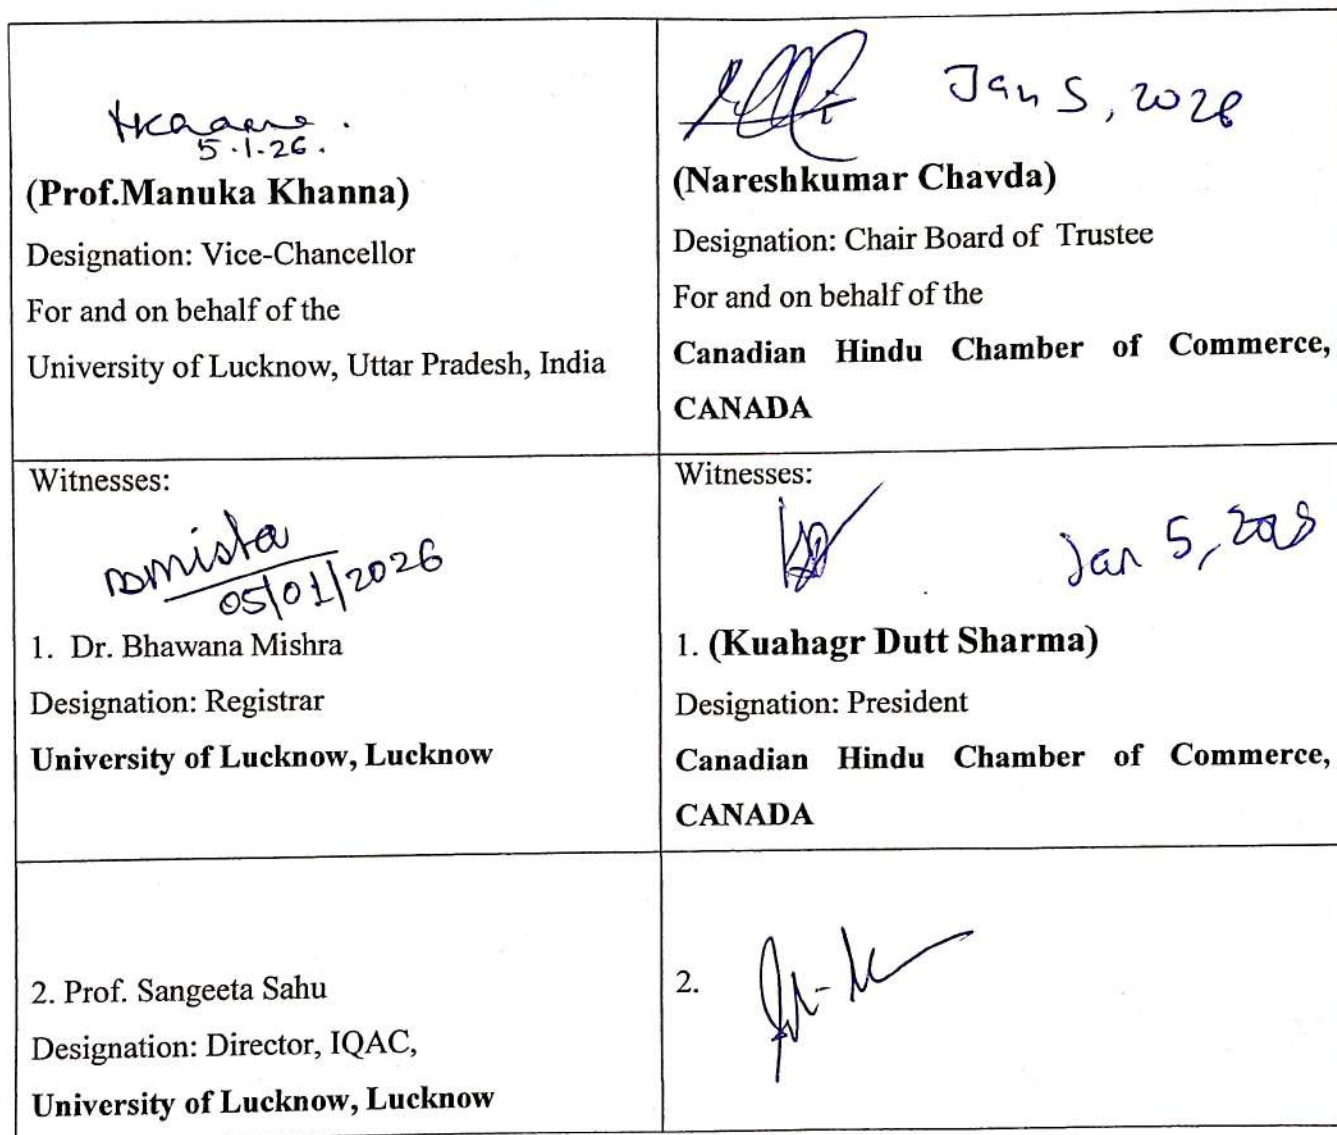 5.1.26.
(Prof.Manuka Khanna)
Designation: Vice-Chancellor
For and on behalf of the
University of Lucknow, Uttar Pradesh, India
Jan 5, 2026
(Nareshkumar Chavda)
Designation: Chair Board of Trustee
For and on behalf of the
Canadian Hindu Chamber of Commerce,
CANADA
Witnesses:
05/01/2026
1. Dr. Bhawana Mishra
Designation: Registrar
University of Lucknow, Lucknow
Witnesses:
Jan 5,
1. (Kuahagr Dutt Sharma)
Designation: President
Canadian Hindu Chamber of Commerce,
CANADA
2. Prof. Sangeeta Sahu
Designation: Director, IQAC,
University of Lucknow, Lucknow
2.